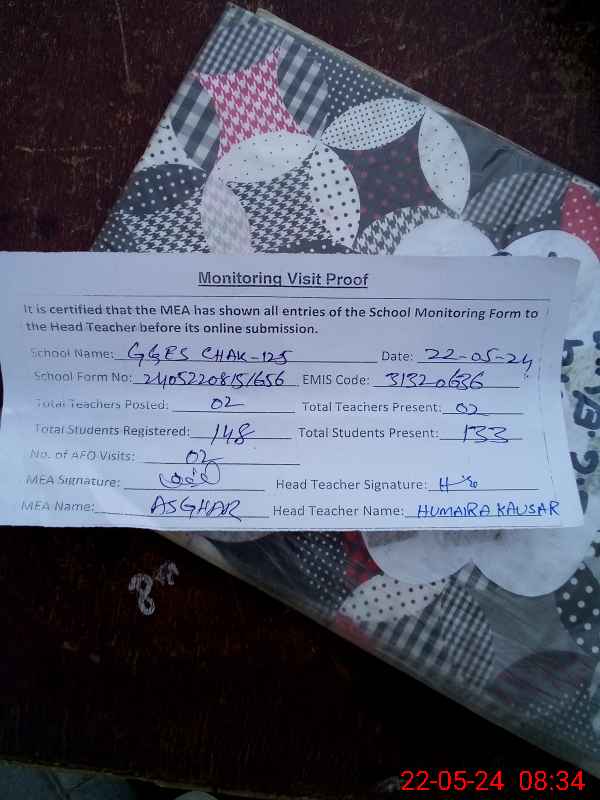 Monitoring Visit Proof
It is certified that the MEA has shown all entries of the School Monitoring Form to
the Head Teacher before its online submission.
School Name: GGES CHAK-125 Date: 22-05-24
School Form No: 24052208151656 EMIS Code: 31320636
Total Teachers Posted: 02 Total Teachers Present: 02
Total Students Registered: 148 Total Students Present: 133
No. of AEO Visits: 02
MEA Signature: Head Teacher Signature:
MEA Name: ASGHAR Head Teacher Name: HUMAIRA KAUSAR
22-05-24 08:34